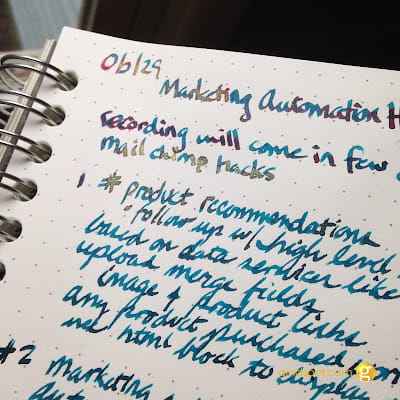 06/29
Marketing Automation H
recording will come in few
mail chimp Hacks
1 * product recommendations
follow up w/ high level
based on data services like
upload merge fields
image & product links
any product purchased
use html block to
#2 marketing